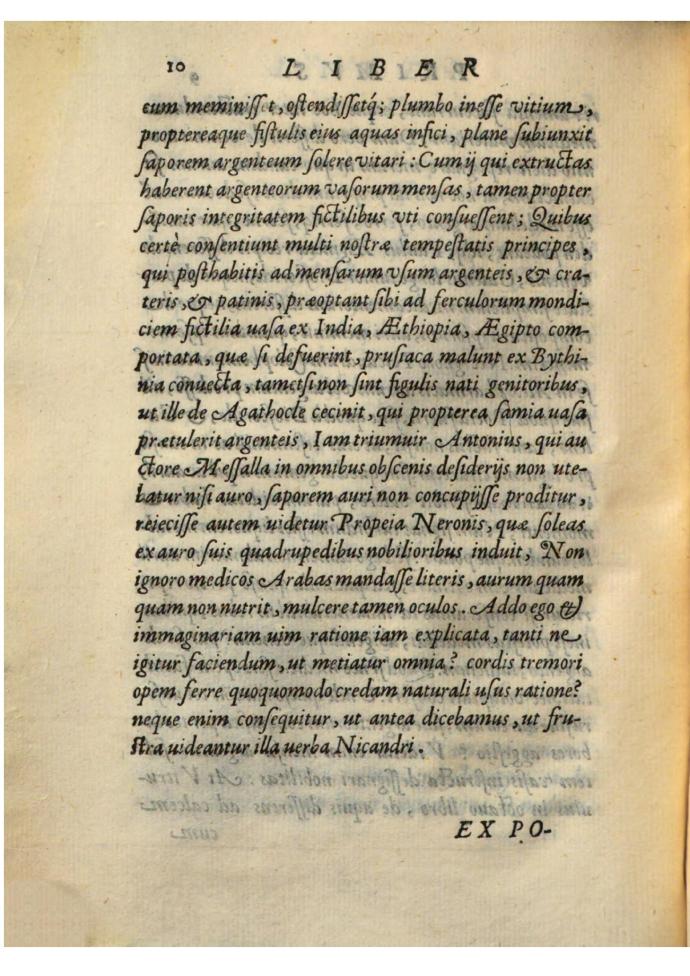 10 LIBER
cum meminisset, ostendissetq́; plumbo inesse vitium,
proptereaque fistulis eius aquas infici, plane subiunxit
saporem argenteum solere vitari: Cum ij qui extructas
haberent argenteorum vasorum mensas, tamen propter
saporis integritatem fictilibus vti consuessent; Quibus
certè consentiunt multi nostræ tempestatis principes,
qui posthabitis ad mensarum vsum argenteis, & cra-
teris, & patinis, præoptant sibi ad ferculorum mondi-
ciem fictilia uasa ex India, Æthiopia, Ægipto com-
portata, quæ si defuerint, prusiaca malunt ex Bythi-
nia conuecta, tametsi non sint figulis nati genitoribus,
ut ille de Agathocle cecinit, qui propterea samia uasa
prætulerit argenteis, Iam triumuir Antonius, qui au
ctore Messalla in omnibus obscenis desiderijs non ute-
batur nisi auro, saporem auri non concupijsse proditur,
reiecisse autem uidetur Propeia Neronis, quæ soleas
ex auro suis quadrupedibus nobilioribus induit, Non
ignoro medicos Arabas mandasse literis, aurum quam
quam non nutrit, mulcere tamen oculos. Addo ego &
immaginariam uim ratione iam explicata, tanti ne
igitur faciendum, ut metiatur omnia? cordis tremori
opem ferre quoquomodo credam naturali usus ratione?
neque enim consequitur, ut antea dicebamus, ut fru-
stra uideantur illa uerba Nicandri.
EX PO-